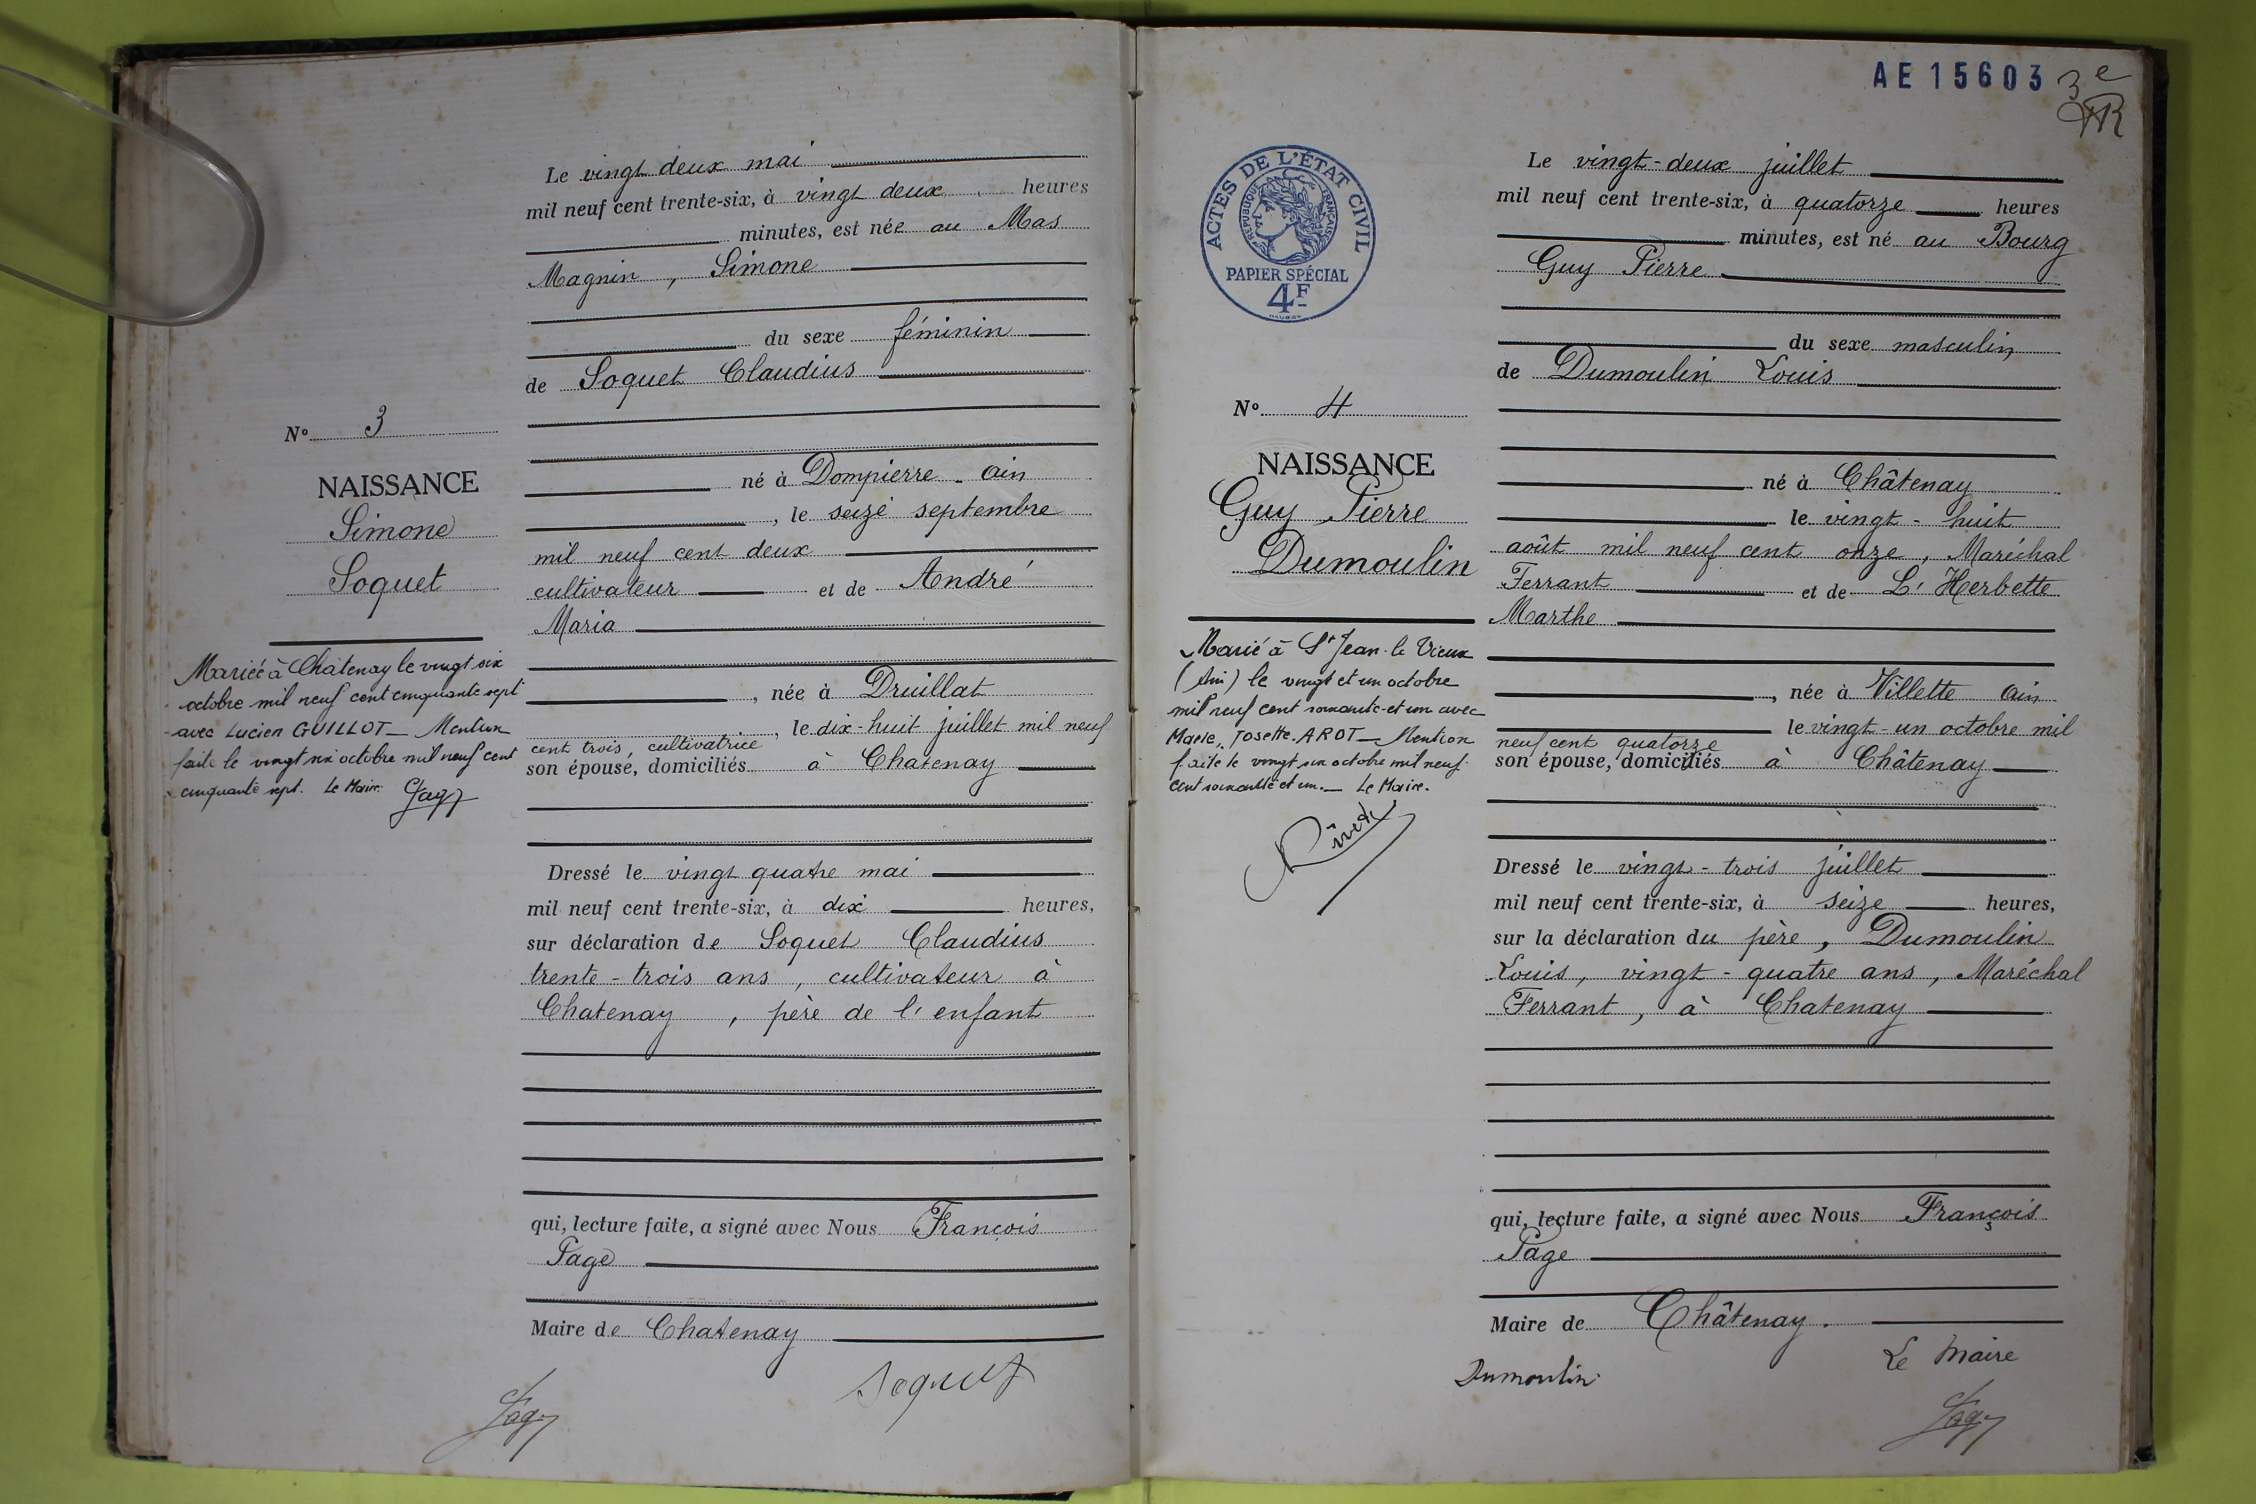 Le vingt deux mai
mil neuf cent trente-six, à vingt deux heures
minutes, est née au Mas
Magnin, Simone
du sexe féminin
de Soquet Claudius
né à Dompierre - Ain
, le seize septembre
mil neuf cent deux
cultivateur et de André
Maria
, née à Druillat
, le dix-huit juillet mil neuf
cent trois, cultivatrice
son épouse, domiciliés à Chatenay
Dressé le vingt quatre mai
mil neuf cent trente-six, à dix heures,
sur déclaration de Soquet Claudius
trente-trois ans, cultivateur à
Chatenay, père de l'enfant
qui, lecture faite, a signé avec Nous François
Page
Maire de Chatenay
Page
Soquet
N° 3
NAISSANCE
Simone
Soquet
Mariée à Chatenay le vingt six
octobre mil neuf cent cinquante sept
avec Lucien GUILLOT_ Mention
faite le vingt six octobre mil neuf cent
cinquante sept. Le Maire
Page
AE 15603
3e
ACTES DE L'ÉTAT CIVIL
RÉPUBLIQUE FRANÇAISE
PAPIER SPÉCIAL
4F
N° 4
NAISSANCE
Guy Pierre
Dumoulin
Marié à St Jean-le Vieux
(Ain) le vingt et un octobre
mil neuf cent soixante-et-un avec
Marie, Josette AROT_ Mention
faite le vingt six octobre mil neuf
cent soixante et un._ Le Maire.
Le vingt-deux juillet
mil neuf cent trente-six, à quatorze heures
minutes, est né au Bourg
Guy Pierre
du sexe masculin
de Dumoulin Louis
né à Châtenay
le vingt-huit
août mil neuf cent onze, Maréchal
Ferrant et de L'Herbette
Marthe
, née à Villette Ain
le vingt-un octobre mil
neuf cent quatorze
son épouse, domiciliés à Châtenay
Dressé le vingt-trois juillet
mil neuf cent trente-six, à seize heures,
sur la déclaration du père, Dumoulin
Louis, vingt-quatre ans, Maréchal
Ferrant, à Chatenay
qui, lecture faite, a signé avec Nous François
Page
Maire de Châtenay.
Dumoulin
Le Maire
Page